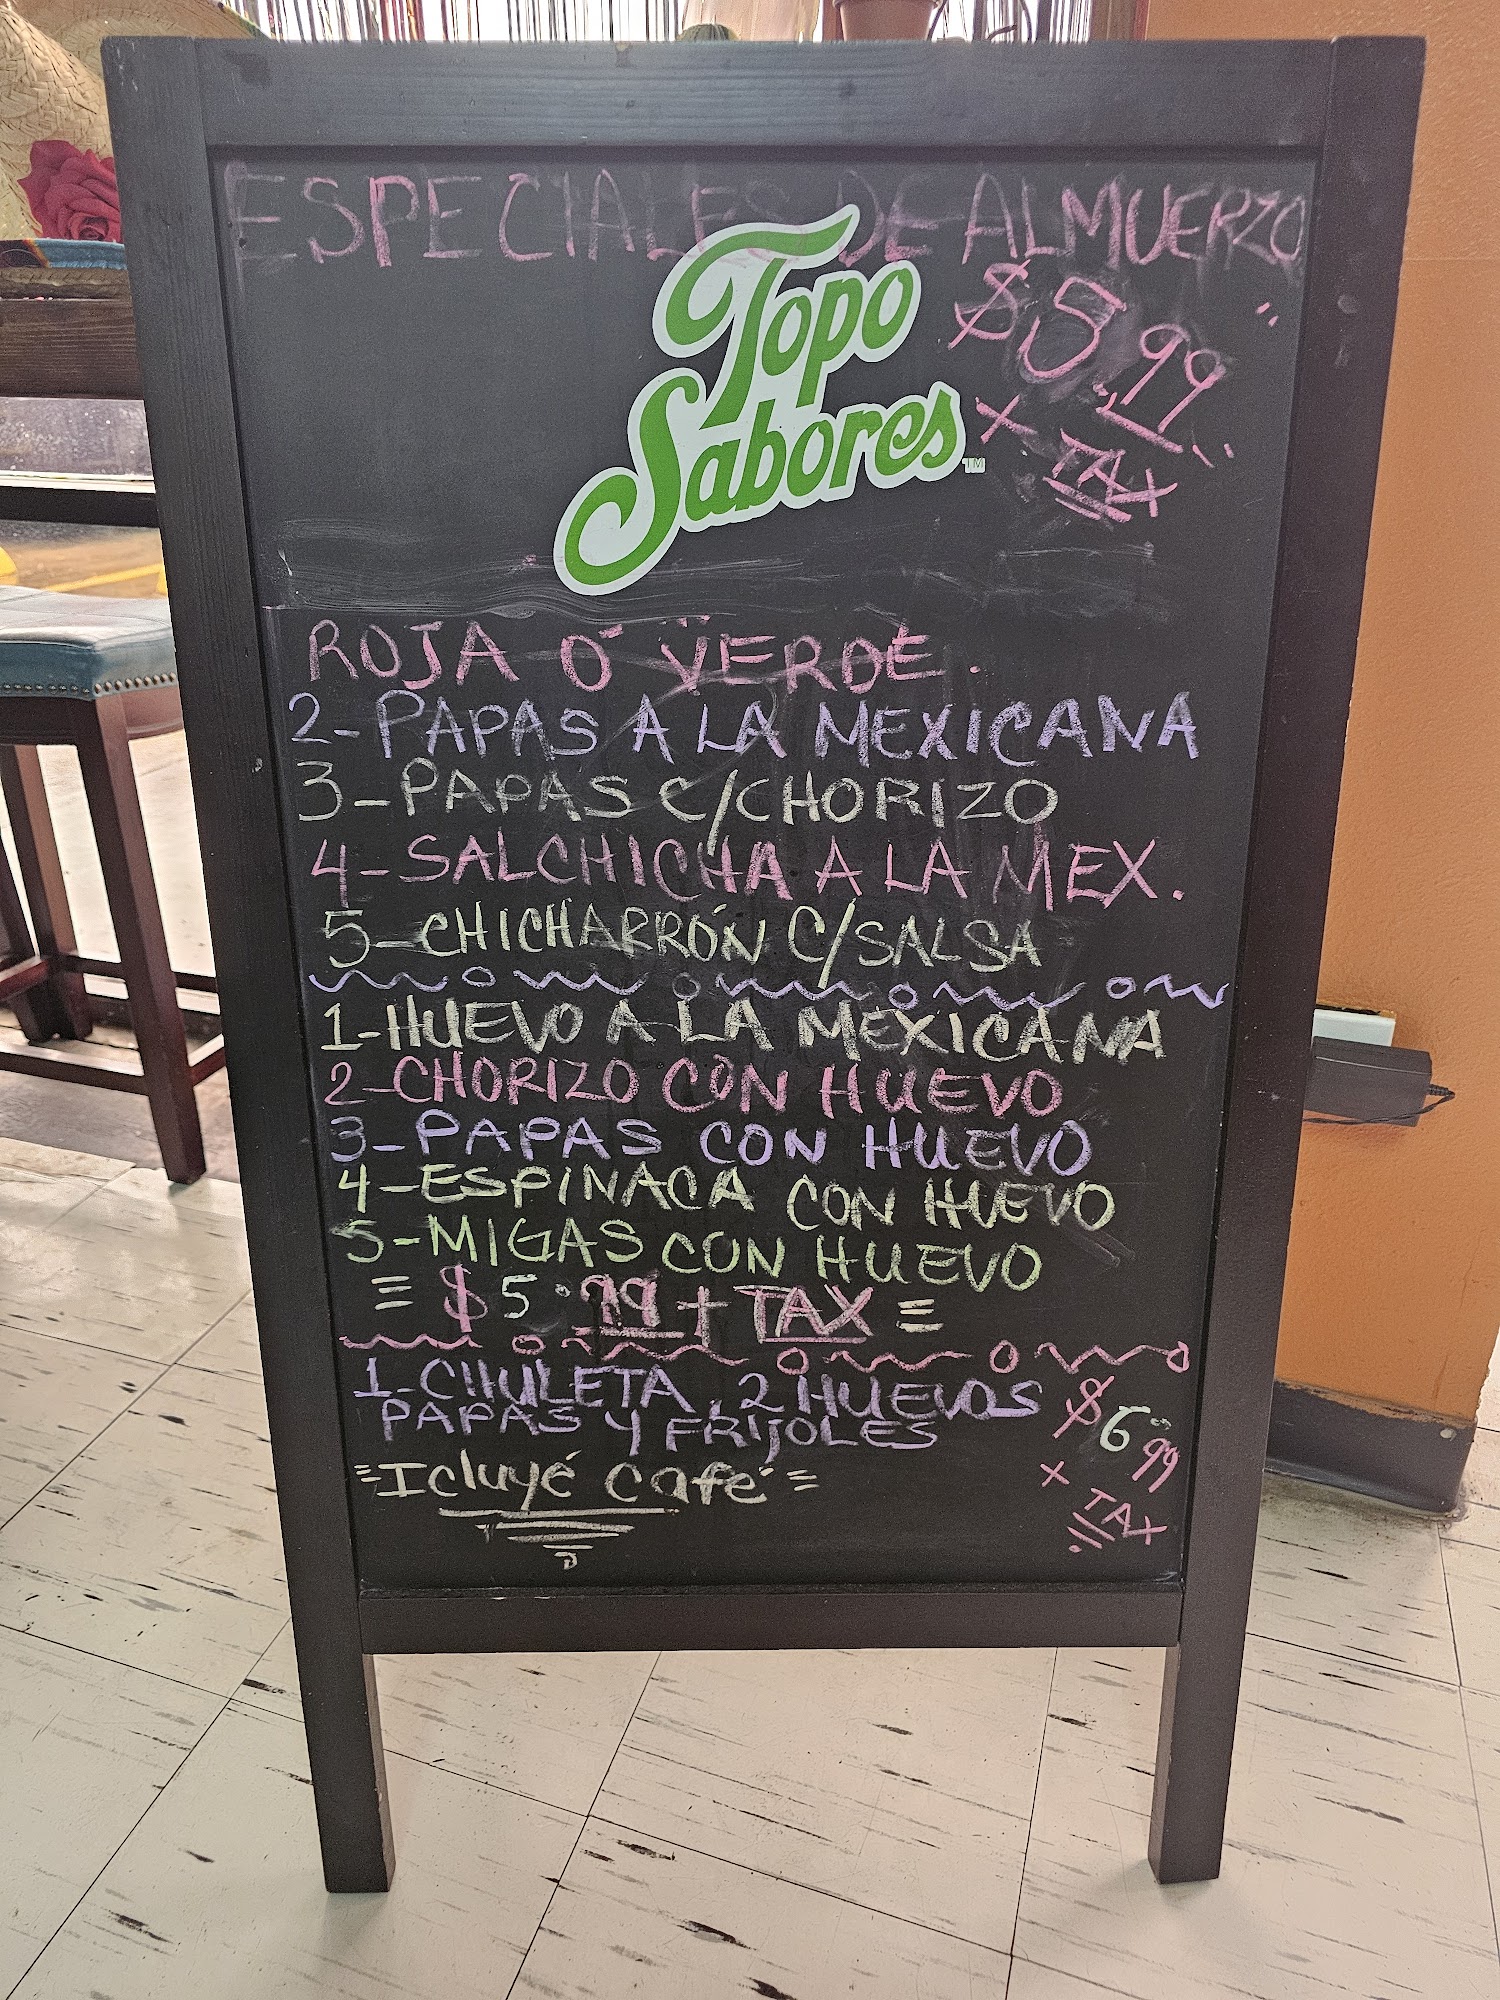 ESPECIALES DE ALMUERZO
Topo
Sabores™
$5.99
+ TAX
ROJA O VERDE.
2-PAPAS A LA MEXICANA
3-PAPAS C/CHORIZO
4-SALCHICHA A LA MEX.
5-CHICHARRÓN C/SALSA
1-HUEVO A LA MEXICANA
2-CHORIZO CON HUEVO
3-PAPAS CON HUEVO
4-ESPINACA CON HUEVO
5-MIGAS CON HUEVO
= $5.99 + TAX =
1-CHULETA, 2 HUEVOS
PAPAS Y FRIJOLES
$6.99
+ TAX
=Icluyé café=